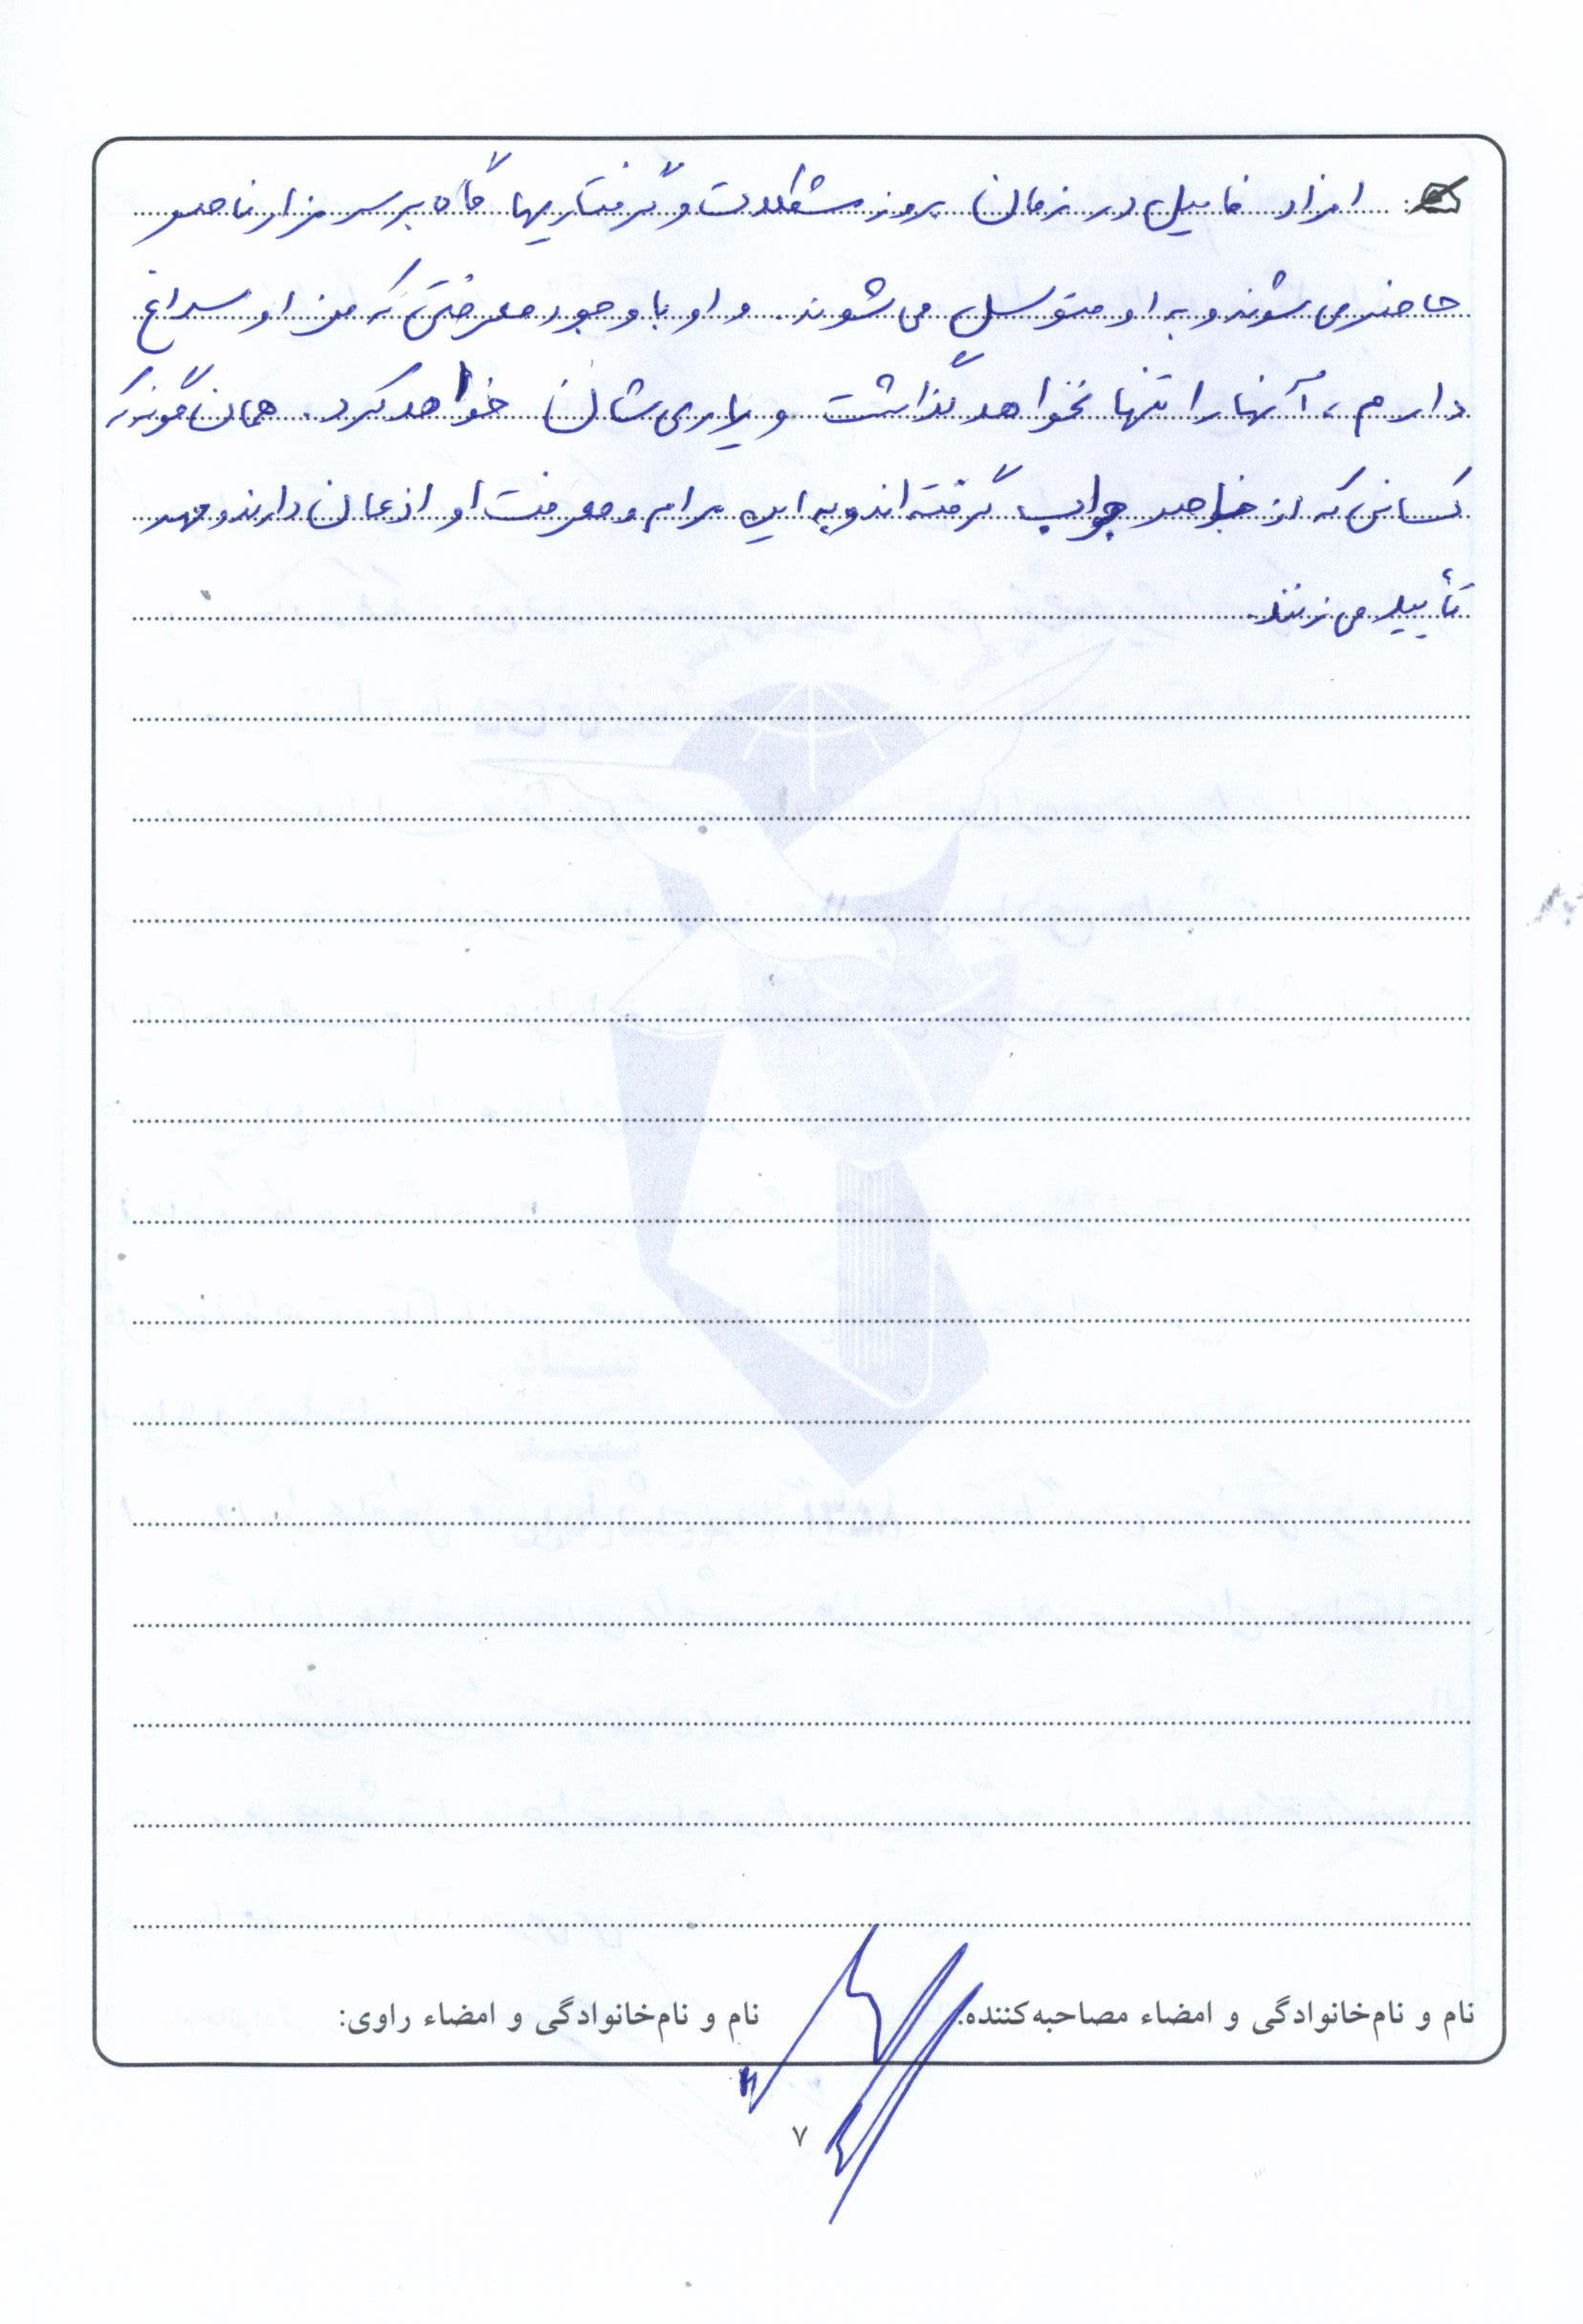 افراد فامیل در زمان بروز مشکلات و گرفتاریها گاه بر سر مزار ناصر
حاضر می شوند و به او متوسل می شوند. و او با وجود معرفتی که من از او سراغ
دارم، آنها را تنها نخواهد گذاشت و یاری شان خواهد کرد. همان گونه که
کسانی که از ناصر جواب گرفته اند و به این مرام و معرفت او اذعان دارند و مهر
تأیید می زنند.
نام و نام‌خانوادگی و امضاء مصاحبه‌کننده:
نام و نام‌خانوادگی و امضاء راوی:
۷